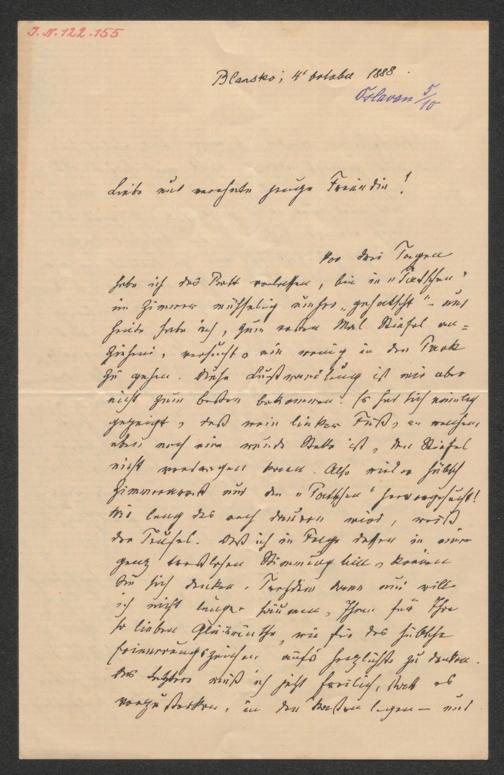 J. N. 122.155
Blansko, 4t october 1888.
Oslavan 5/10
Liebe und verehrte junge Freundin!
Vor drei Tagen
habe ich das Bett verlassen, bin in "Patschen"
im Zimmer mühselig umher "gehatscht" – und
heute habe ich, zum ersten Mal Stiefel an=
ziehend, versucht ein wenig in den Park
zu gehen. Diese Lustwandlung ist mir aber
nicht zum besten bekommen. Es hat sich nämlich
gezeigt, daß mein linker Fuß, an welchem
eben noch eine wunde Stelle ist, den Stiefel
nicht vertragen kann. Also wieder hübsch
Zimmerarrest und den "Patschen" hervorgesucht!
Wie lang das noch dauern wird, weiß
der Teufel. Daß ich in Folge dessen in einer
ganz trostlosen Stimmung bin, können
Sie sich denken. Trotzdem und will
ich nicht länger säumen, Ihnen für Ihre
so lieben Glückwünsche, wie für das hübsche
Erinnerungszeichen aufs herzlichste zu danken.
Das letztere muß ich jetzt freilich, statt es
vorzustecken, in den Kasten legen – und